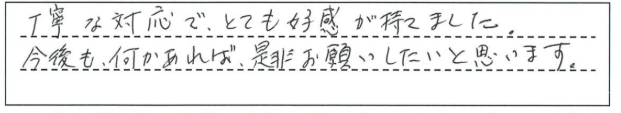 丁寧な対応で、とても好感が持てました。
今後も、何かあれば、是非お願いしたいと思います。